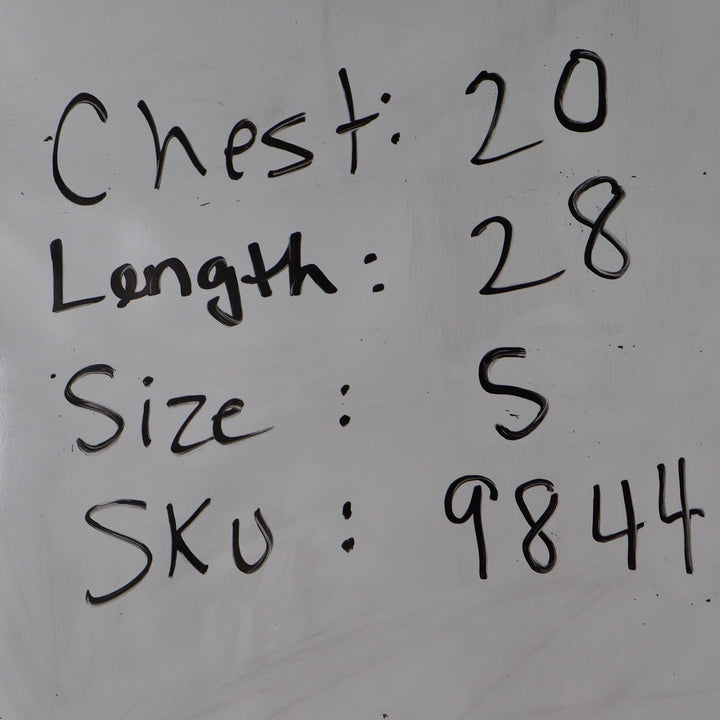 Chest: 20
Length: 28
Size: S
SKU: 9844